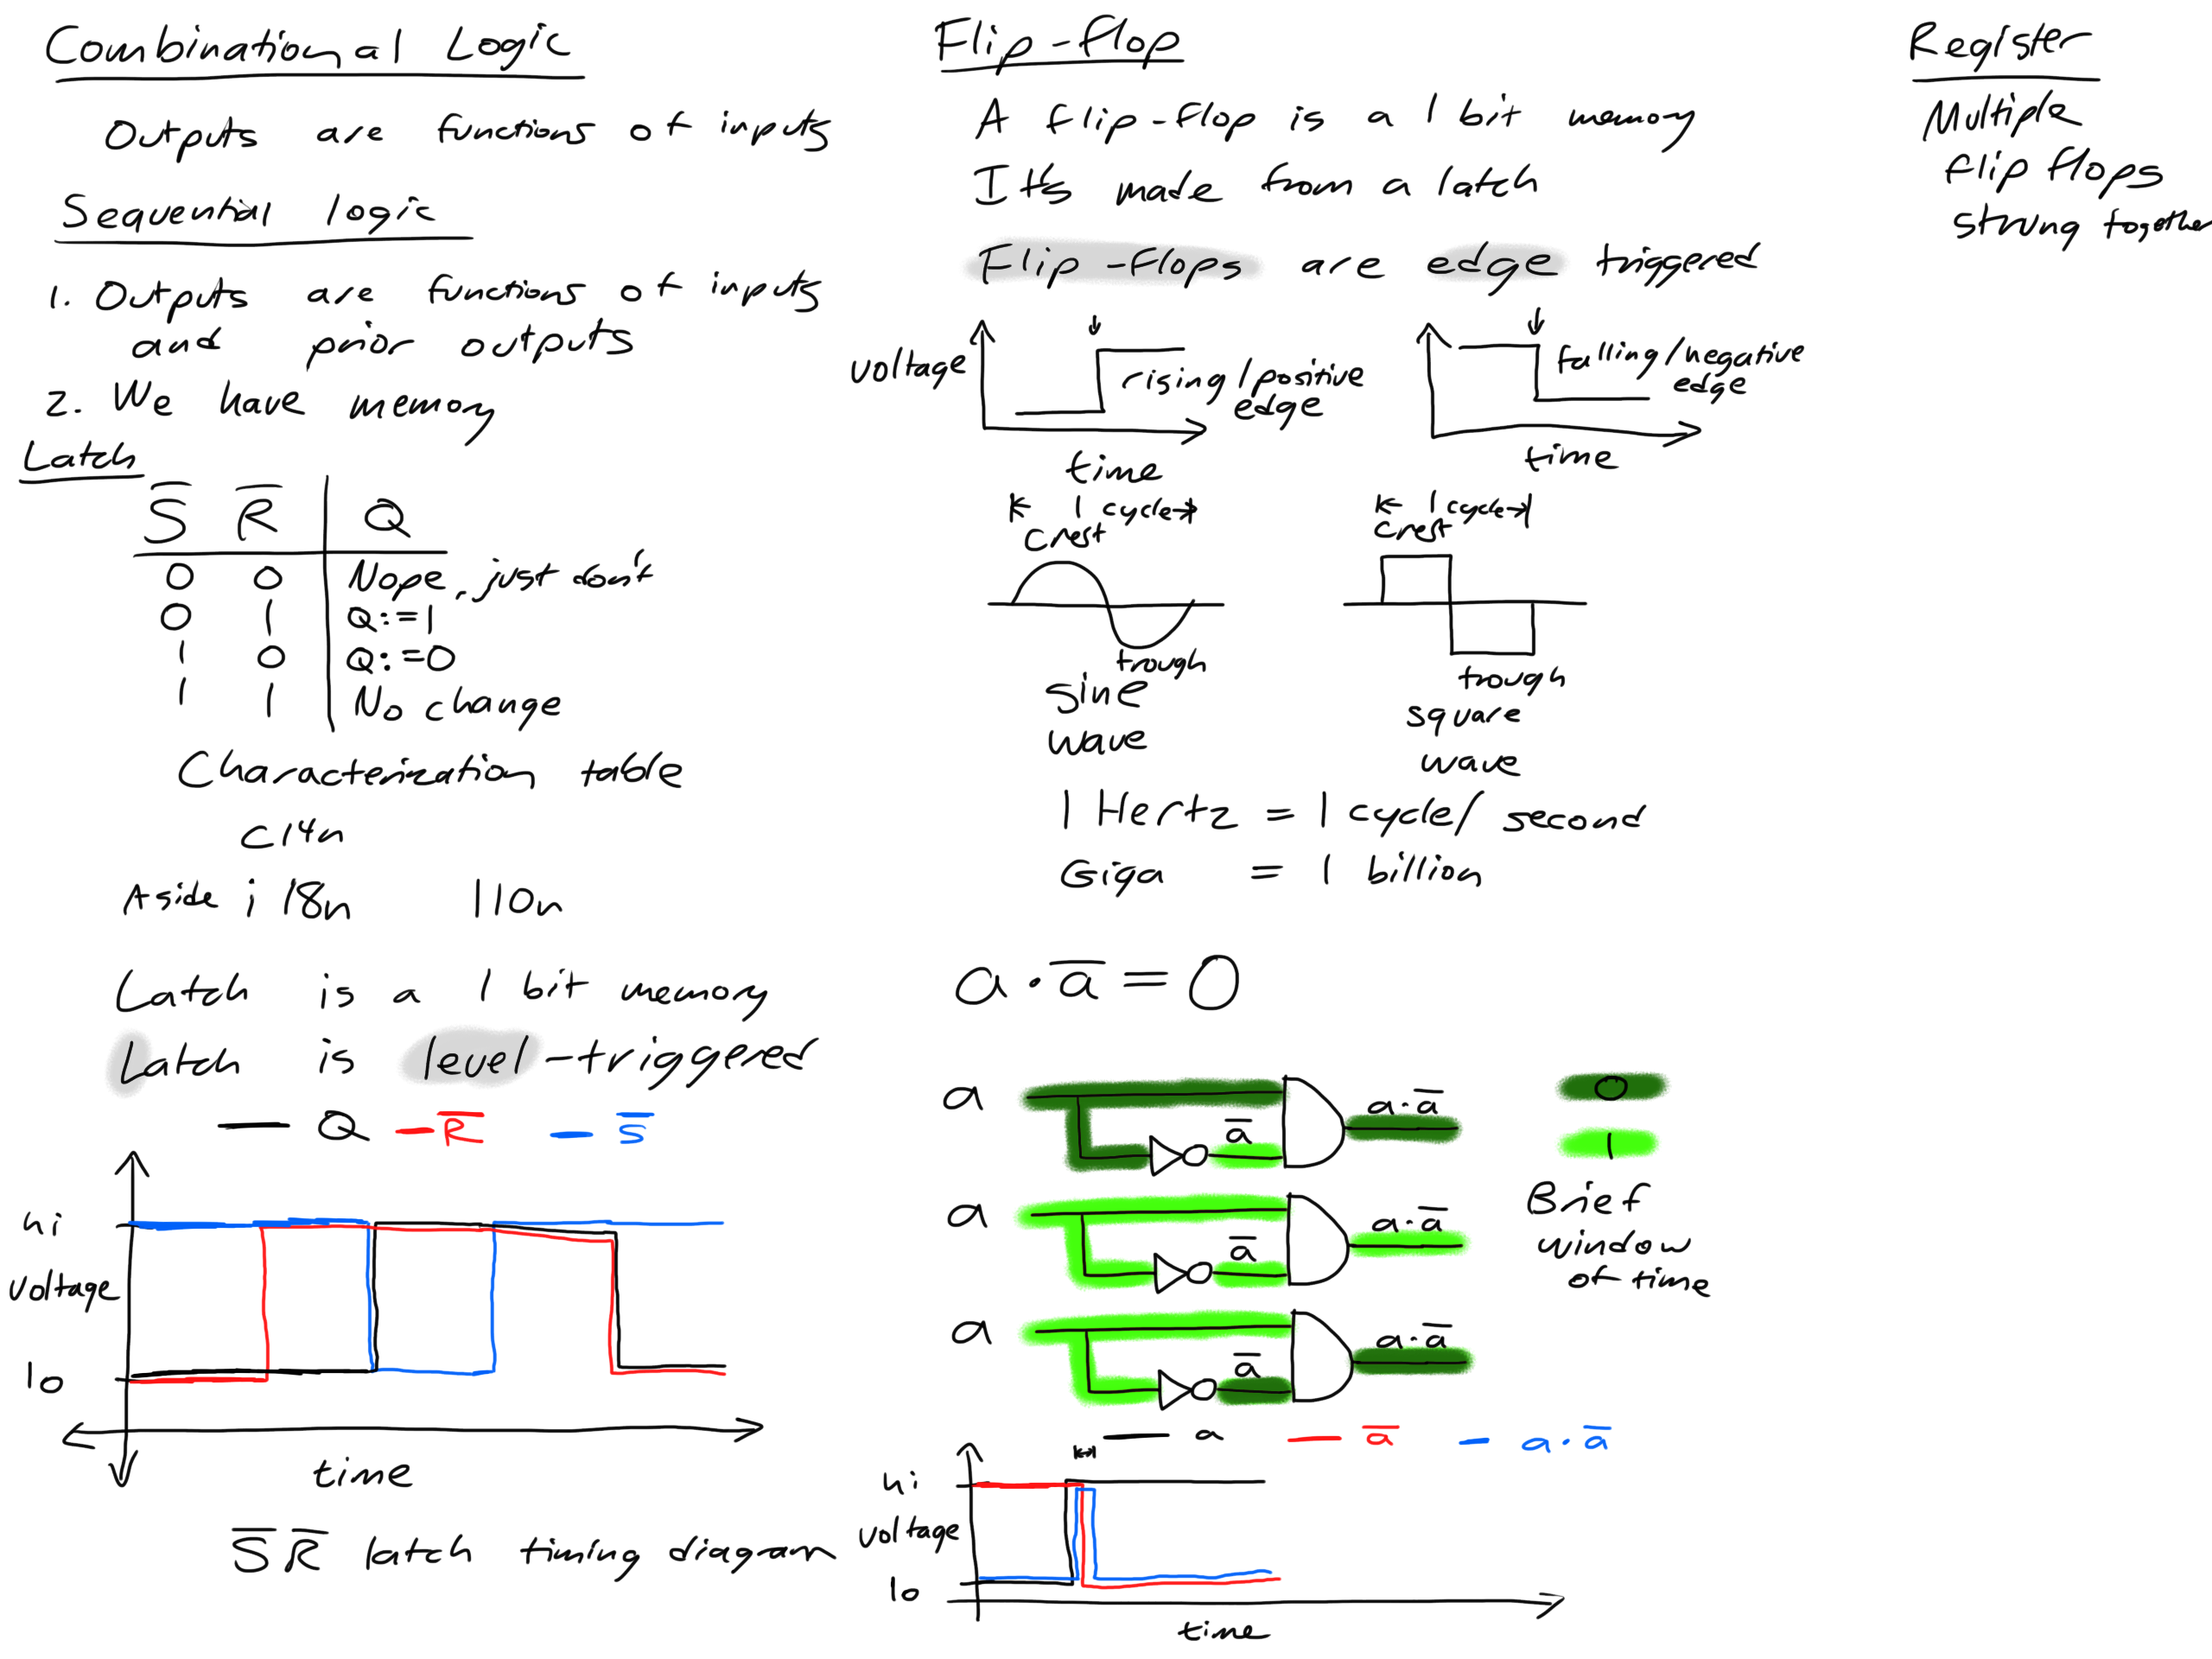 Combinational Logic
Outputs are functions of inputs
Sequential logic
1. Outputs are functions of inputs
and prior outputs
2. We have memory
Latch
S̅ R̅ Q
0 0 Nope, just don't
0 1 Q:=1
1 0 Q:=0
1 1 No change
Characterization table
c14n
Aside i18n l10n
Latch is a 1 bit memory
Latch is level-triggered
Q R̅ S̅
hi
voltage
lo
time
S̅ R̅ latch timing diagram
Flip-flop
A flip-flop is a 1 bit memory
It's made from a latch
Flip-Flops are edge triggered
voltage
rising/positive
edge
time
falling/negative
edge
time
1 cycle
Crest
trough
sine
wave
1 cycle
Crest
trough
square
wave
1 Hertz = 1 cycle/second
Giga = 1 billion
a·a̅=0
a a̅ a·a̅
0
1
a a̅ a·a̅
Brief
window
of time
a a̅ a·a̅
a a̅ a·a̅
hi
voltage
lo
time
Register
Multiple
flip flops
strung together